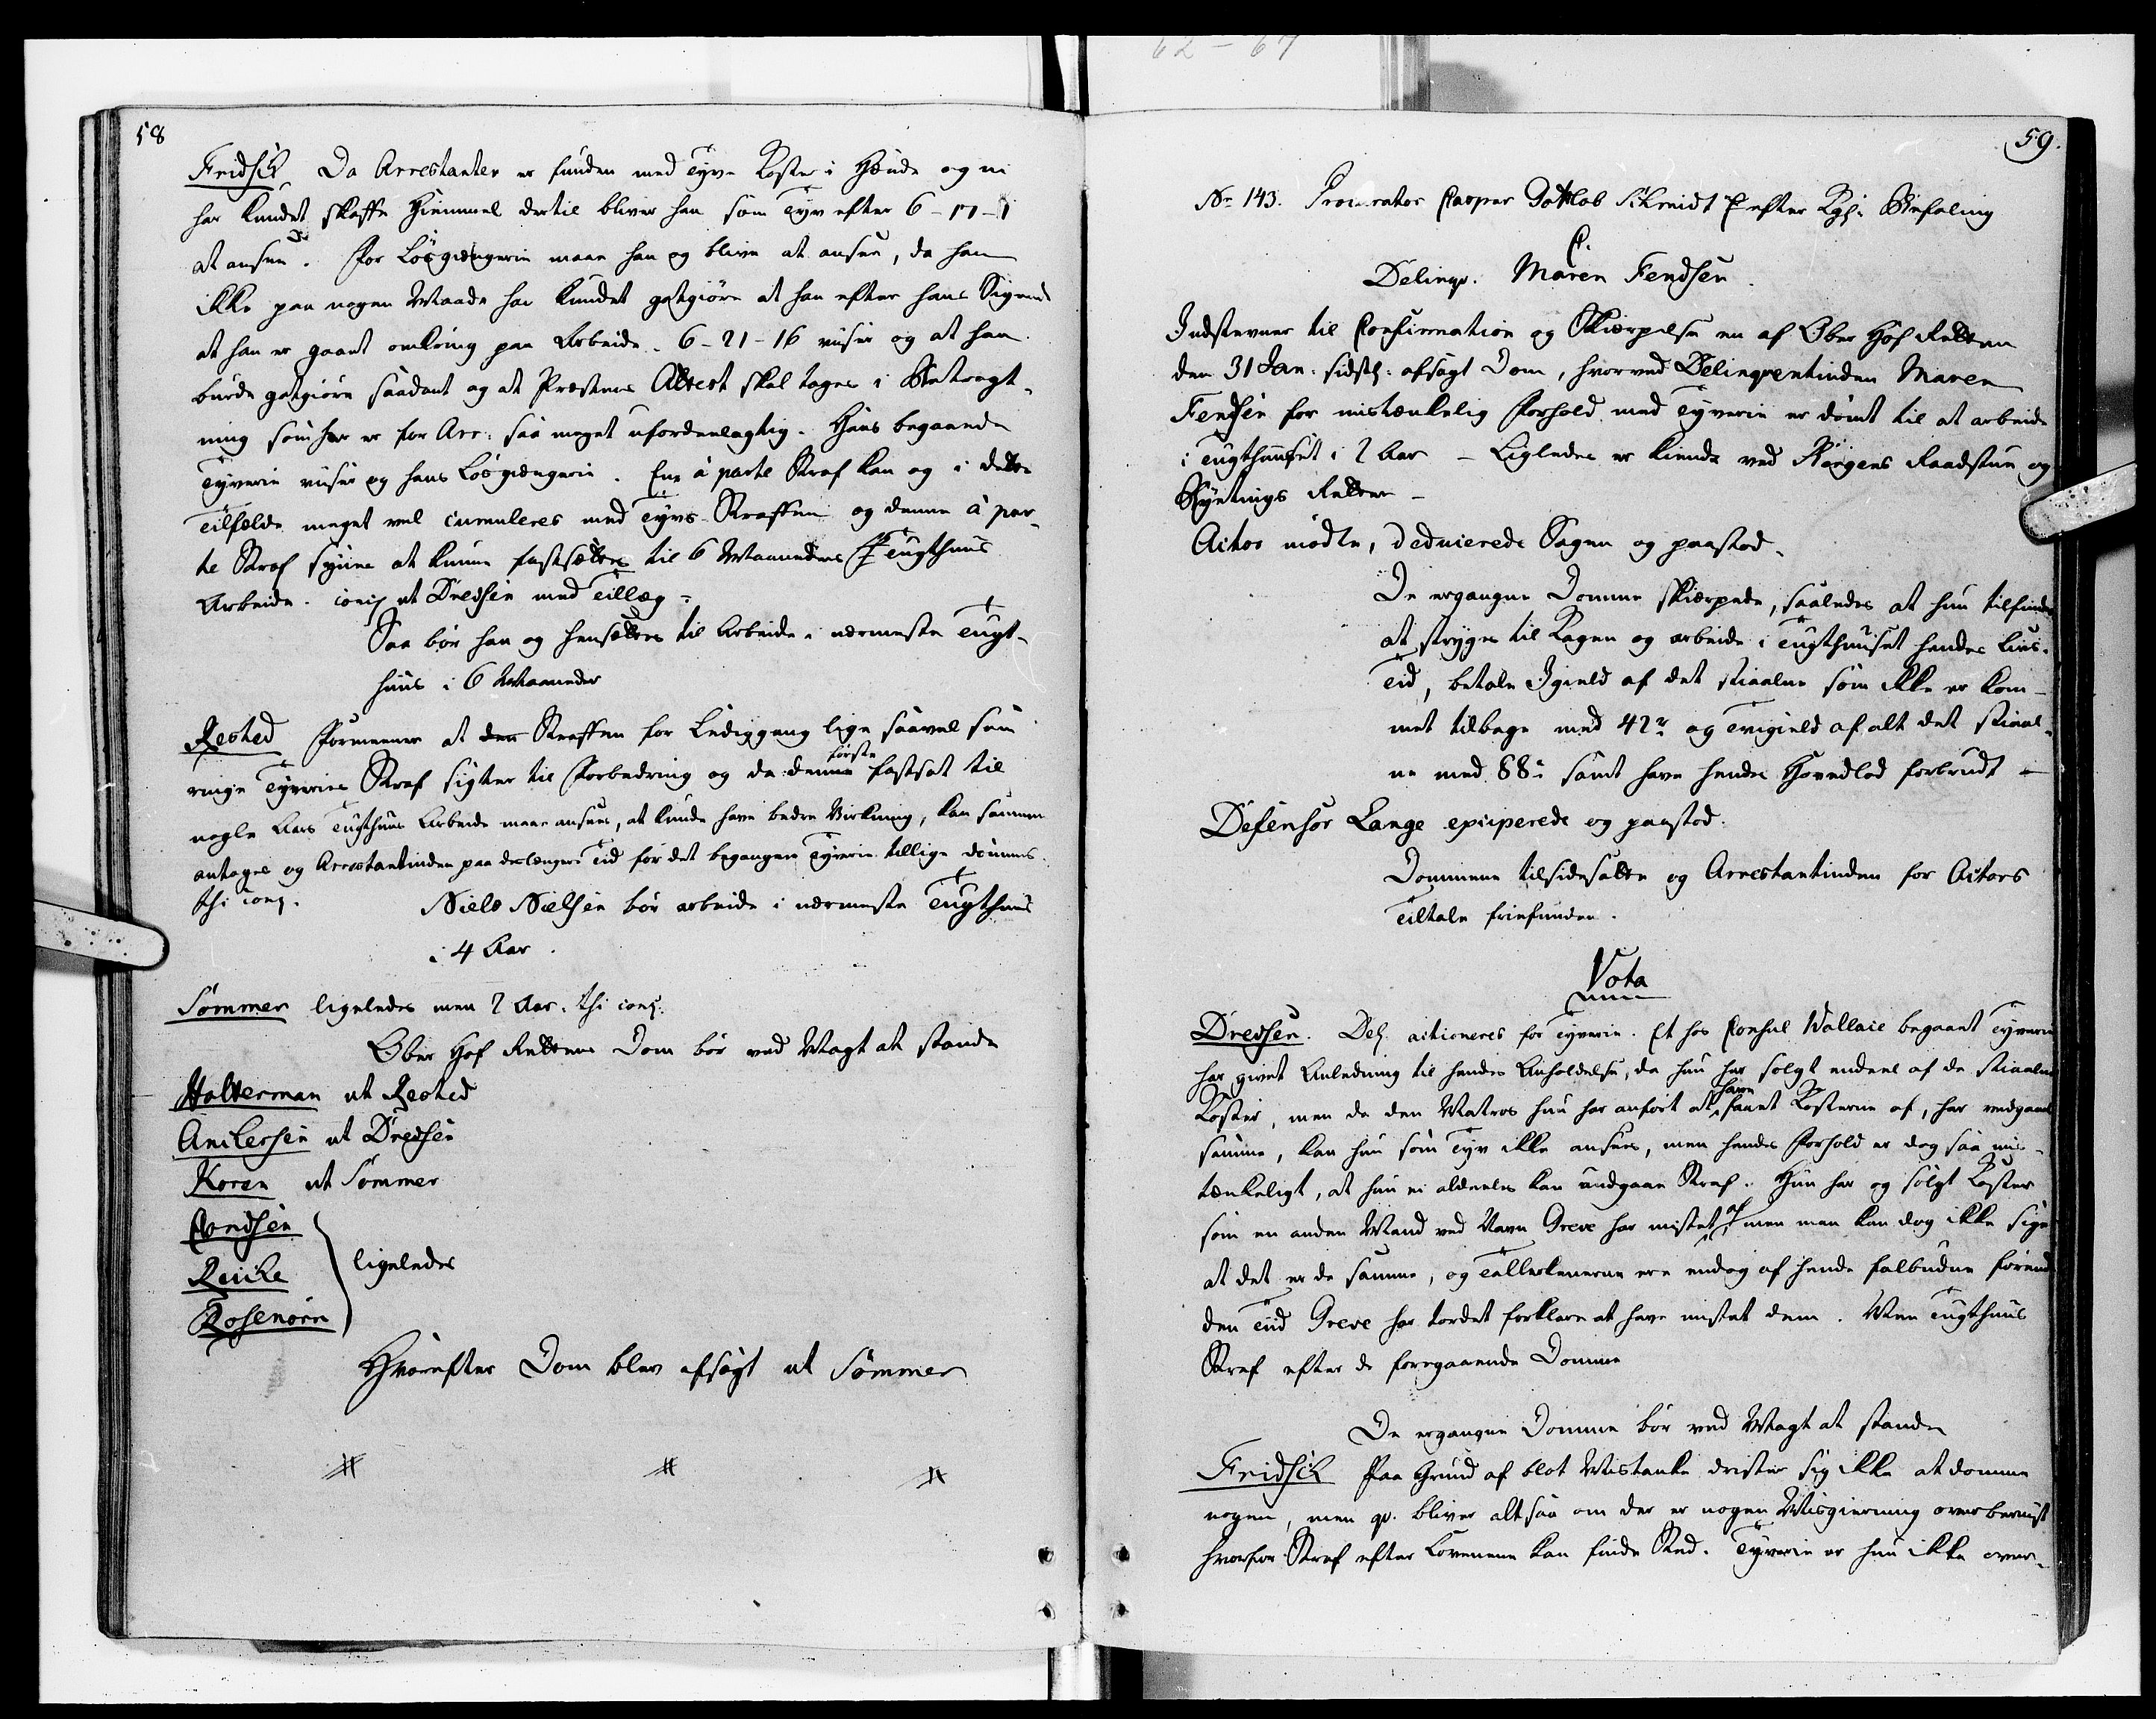 58
Fridsch Da Arrestanten er funden med Tyve Koster i Hænde og ei
har kundet skaffe Hiemmel dertil bliver han som Tyv efter 6-17-1
at ansee. For Løsgiængerie maae han og blive at ansee, da han
ikke paa nogen Maade har kundet godtgiøre at han efter hans Sigende
at han er gaaet omkring paa Arbeide. 6-21-16 viiser og at han
burde godtgiøre saadant og at Præstens Attest skal tages i Betragt-
ning som her er for Arr: saa meget ufordeelagtig. Hans begaaede
Tyverie viiser og hans Løsgiængerie. Een à parte Straf kan og i dette
Tilfælde meget vel cumuleres med Tyvs-Straffen og denne à par-
te Straf synes at kunne fastsættes til 6 Maaneders Tugthuus
Arbeide. conq ut Dredsen med Tillæg:
Saa bør han og hensættes til Arbeide i nærmeste Tugt-
huus i 6 Maaneder
Rested Formeener at Straffen for Lediggang lige saavel som
ringe Tyveries Straf sigter til Forbedring og da denne første fastsat til
nogle Aars Tugthuus Arbeide maae ansees, at kunde have bedre Virkning, kan samme
antages og Arrestantinden paa deslængere Tid for det begangne Tyverie tillige dømmes.
thi conq. Niels Nielsen bør arbeide i nærmeste Tugthuus
i 4 Aar.
Sommer ligeledes men 2 Aar. thi conq.
Ober Hof Rettens Dom bør ved Magt at stande
Holterman ut Rested
Anckersen ut Dredsen
Koren ut Sommer
Arndsen
Reiche
Rosenørn
ligeledes
Hvorefter Dom blev afsagt ut Sommer
59.
No 143. Procurator Casper Gottlob Schmidt efter Kgl: Befaling
C.
Delinqv. Maren Fendsen.
Indstevner til Confirmation og Skiærpelse en af Ober Hof Retten
den 31 Jan: sidstl: afsagt Dom, hvorved Delinqventinden Maren
Fendsen for mistænkelig Forhold med Tyverie er dømt til at arbeide
i Tugthuuset i 2 Aar – Ligeledes er kiendt ved Bergens Raadstue og
Byetings Retter –
Actor mødte, deducerede Sagen og paastod.
De ergangne Domme skiærpede, saaledes at hun tilfindes
at stryges til Kagen og arbeide i Tugthuuset hendes Livs-
Tid, betale Igield af det stiaalne som ikke er kom-
met tilbage med 42 og Tvigield af alt det stiaal-
ne med 88 samt have hendes Hovedlod forbrudt –
Defensor Lange exciperede og paastod:
Dommene tilsidesatte og Arrestantinden for Actors
Tiltale friefunden.
Vota
Dredsen. Del. actioneres for Tyverie. Et hos Consul Wallace begaaet Tyverie
har givet Anledning til hendes Anholdelse, da hun har solgt endeel af de stiaalne
Koster, men da den Matros hun har anført at have faaet Kosterne af, har vedgaaet
samme, kan hun som Tyv ikke ansees, men hendes Forhold er dog saa mis-
tænkeligt, at hun ei aldeeles kan undgaae Straf. Hun har og solgt Koster
som en anden Mand ved Navn Greve har mistet, men man kan dog ikke sige
at det er de samme, og Tallerkenerne ere endog af hende falbudne førend
den Tiid Greve har tordet forklare at have mistet dem. Men Tugthuus
Straf efter de foregaaende Domme
De ergangne Domme bør ved Magt at stande
Fridsch Paa Grund af blot Mistanke drister sig ikke at dømme
nogen, men qv. bliver altsaa om der er nogen Misgierning overbeviist
hvorfor Straf efter Lovene kan finde Sted. Tyverie er hun ikke over-